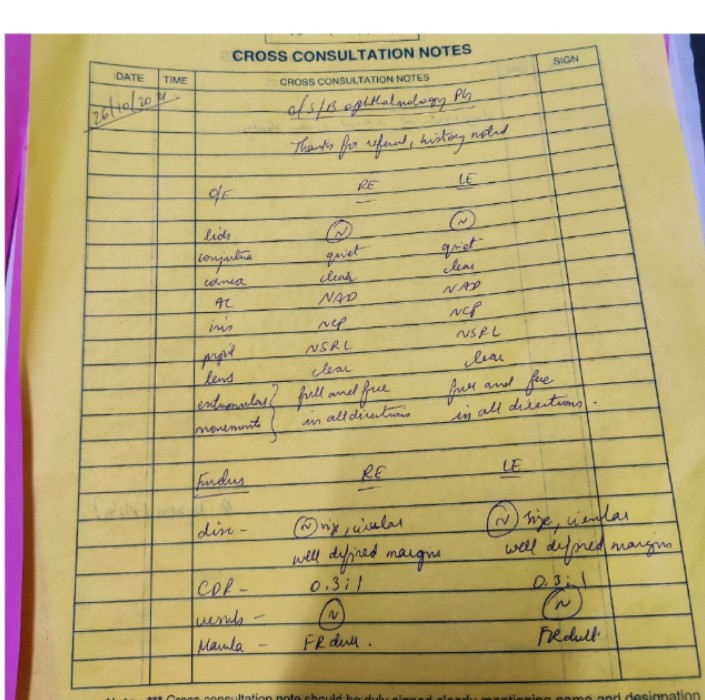 CROSS CONSULTATION NOTES
DATE TIME CROSS CONSULTATION NOTES SIGN
26/10/2021 c/s/B ophthalmology PG
Thanks for referral, history noted
O/E RE LE
lids N N
conjuctiva quiet quiet
cornea clear clear
AC NAD NAD
iris NCP NCP
pupil NSRL NSRL
lens clear clear
extraoccular full and free full and free
movements in all directions in all directions.
Fundus RE LE
disc - N size, circular N size, circular
well defined margins well defined margins
CDR - 0.3:1 0.3:1
vessels - N N
Macula - FR dull. FR dull.
Note: *** Cross consultation note should be duly signed clearly mentioning name and designation